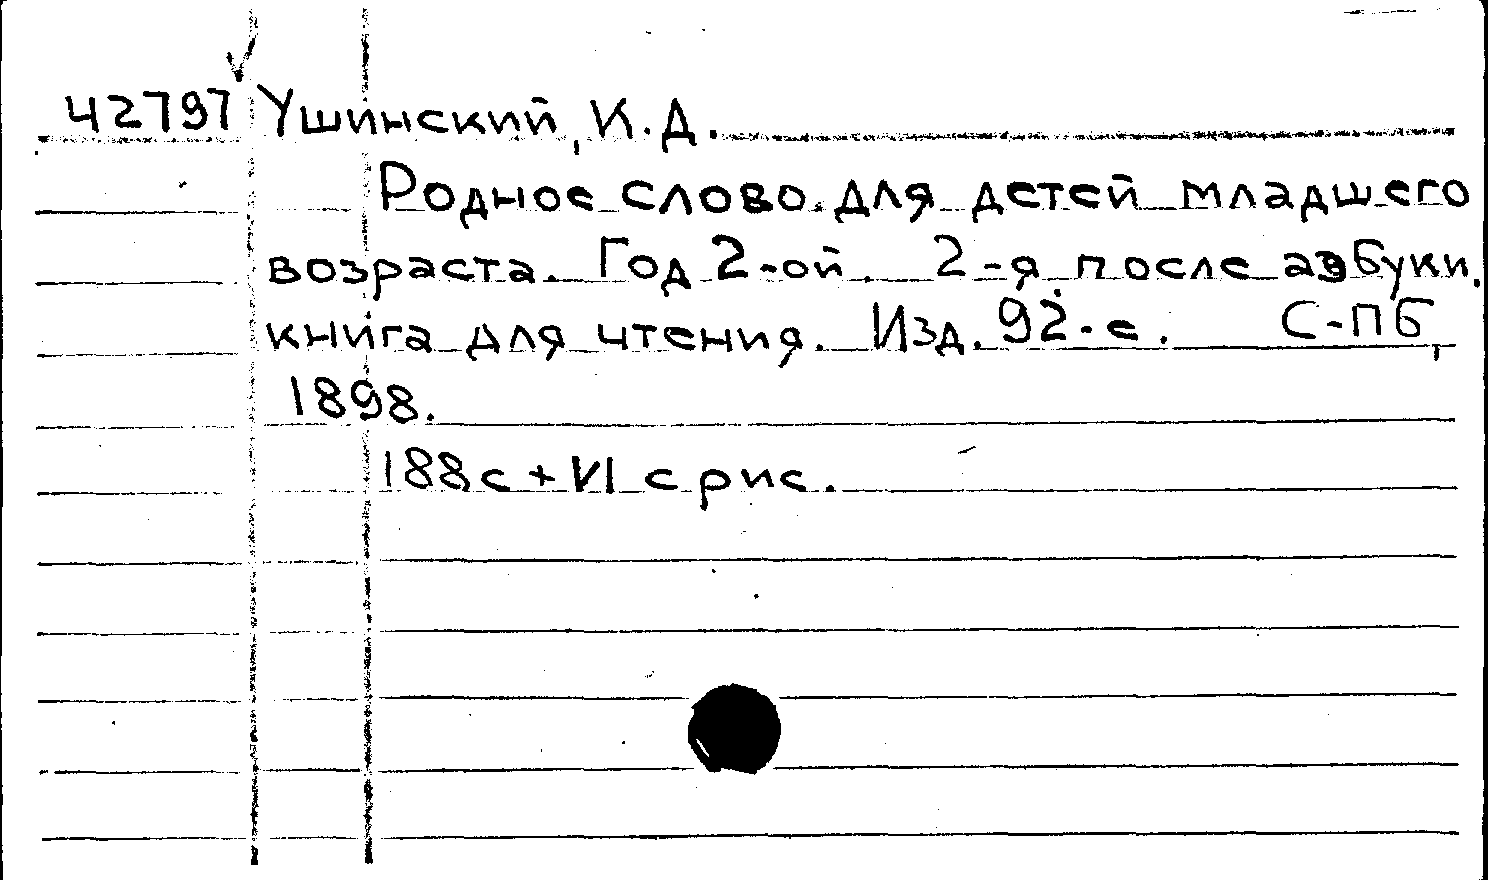 42797 Ушинский, К.Д.
Родное слово. Для детей младшего
возраста. Год 2-ой. 2-я после азбуки.
книга для чтения. Изд. 92-е. С-Пб,
1898.
188с + VI с рис.